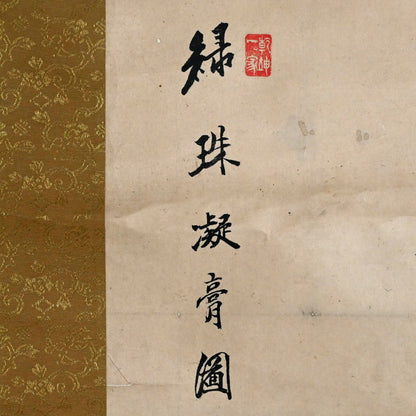 綠珠凝膏圖
乾坤一家